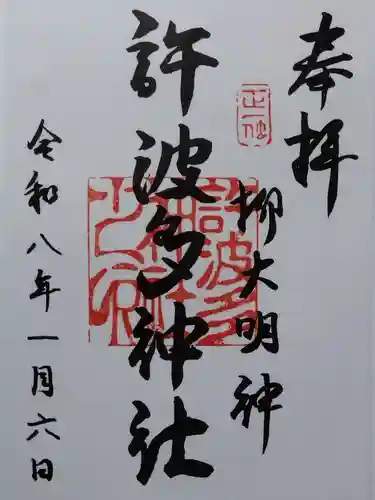 奉拝
正一位
柳大明神
許波多神社
令和八年一月六日